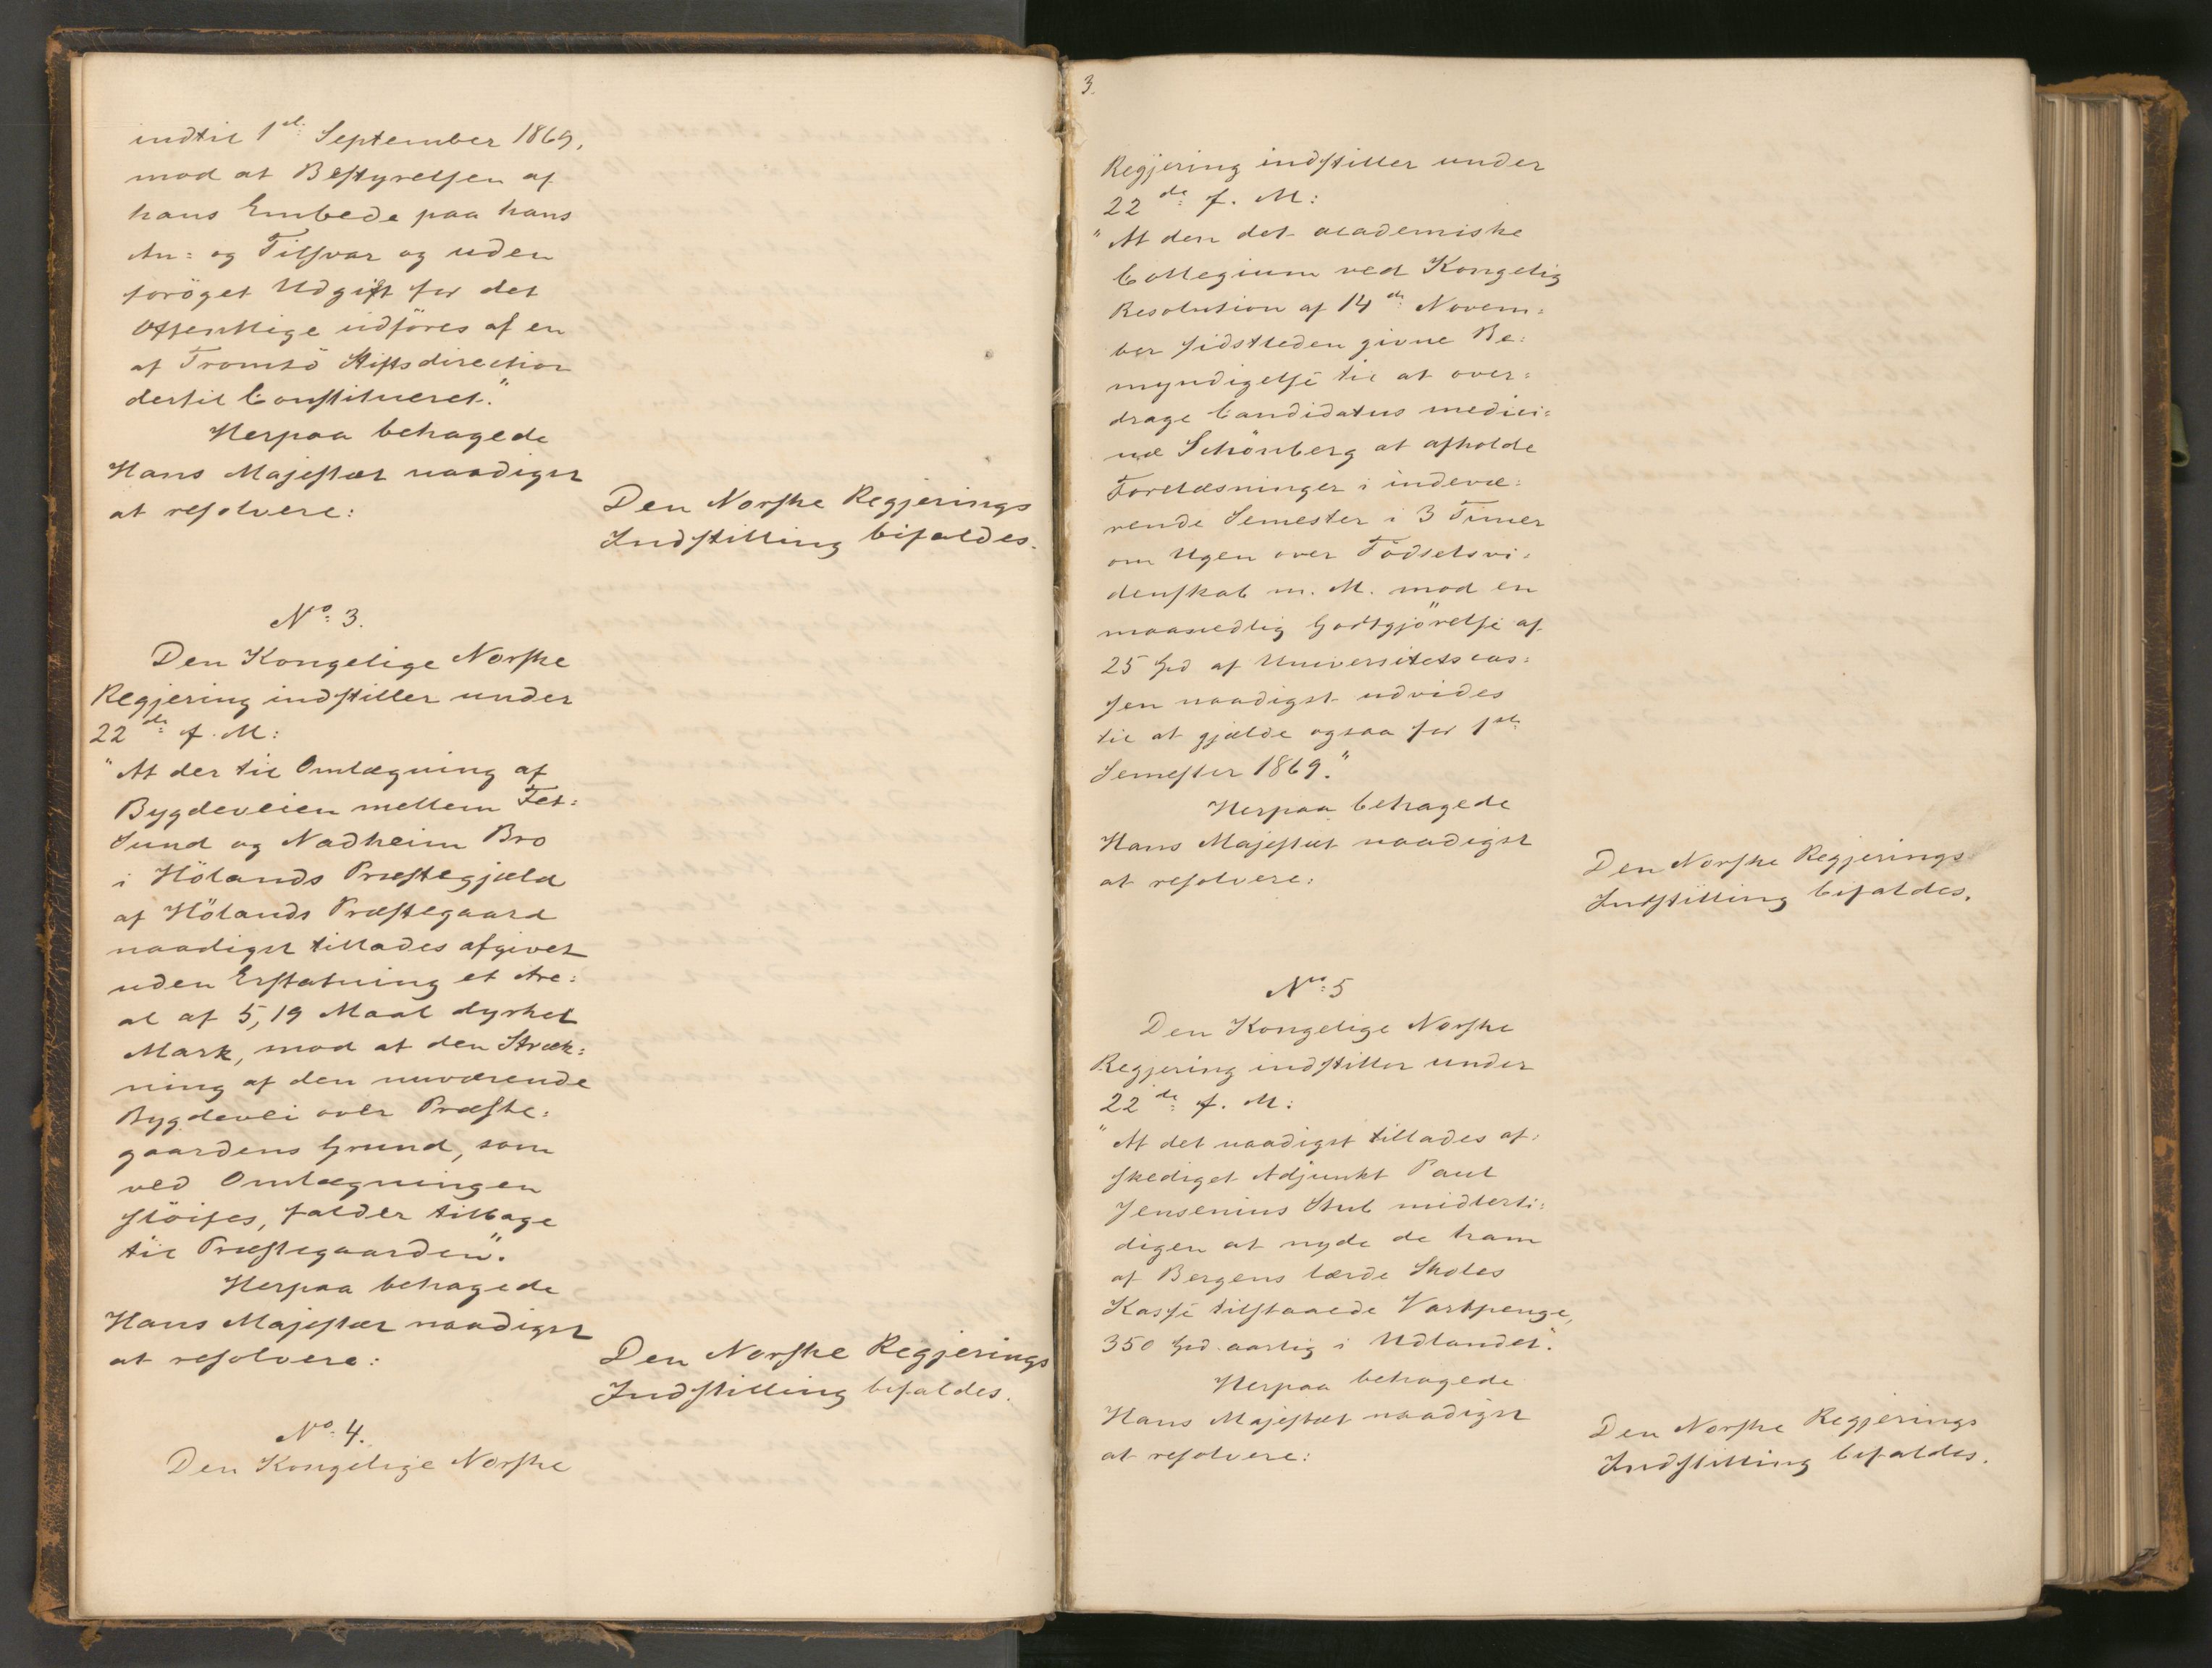 indtil 1ste: September 1869,
mod at Bestyrelsen af
hans Embede paa hans
An= og Tilsvar og uden
foröget Udgift for det
Offentlige udföres af en
af Tromsö Stiftsdirection
dertil Constitueret."
Herpaa behagede
Hans Majestæt naadigst
at resolvere:
Den Norske Regjerings
Indstilling bifaldes.
No: 3.
Den Kongelige Norske
Regjering indstiller under
22de: f. M:
"At der til Omlægning af
Bygdeveien mellem Fet=
sund og Nadheim Bro
i Hölands Præstegjæld
af Hölands Præstegaard
naadigst tillades afgivet
uden Erstatning et Are=
al af 5,19 Maal dyrket
Mark, mod at den Stræk=
ning af den nuværende
Bygdevei over Præste=
gaardens Grund, som
ved Omlægningen
slöifes, falder tilbage
til Præstegaarden".
Herpaa behagede
Hans Majestæt naadigst
at resolvere:
Den Norske Regjerings
Indstilling bifaldes.
No: 4.
Den Kongelige Norske
3.
Regjering indstiller under
22de: f. M:
"At den det academiske
Collegium ved Kongelig
Resolution af 14de: Novem=
ber sidstleden givne Be=
myndigelse til at over=
drage Candidatus medici=
næ Schönberg at afholde
Forelæsninger i indevæ=
rende Semester i 3 Timer
om Ugen over Födselsvi=
denskab m. M. mod en
maanedlig Godtgjörelse af
25 Spd af Universitetscas=
sen naadigst udvides
til at gjælde ogsaa for 1ste:
Semester 1869."
Herpaa behagede
Hans Majestæt naadigst
at resolvere:
Den Norske Regjerings
Indstilling bifaldes.
No: 5
Den Kongelige Norske
Regjering indstiller under
22de: f. M:
"At det naadigst tillades af=
skediget Adjunkt Paul
Jensenius Stub midlerti=
digen at nyde de ham
af Bergens lærde Skoles
Kasse tilstaaede Vartpenge,
350 Spd aarlig i Udlandet".
Herpaa behagede
Hans Majestæt naadigst
at resolvere:
Den Norske Regjerings
Indstilling bifaldes.